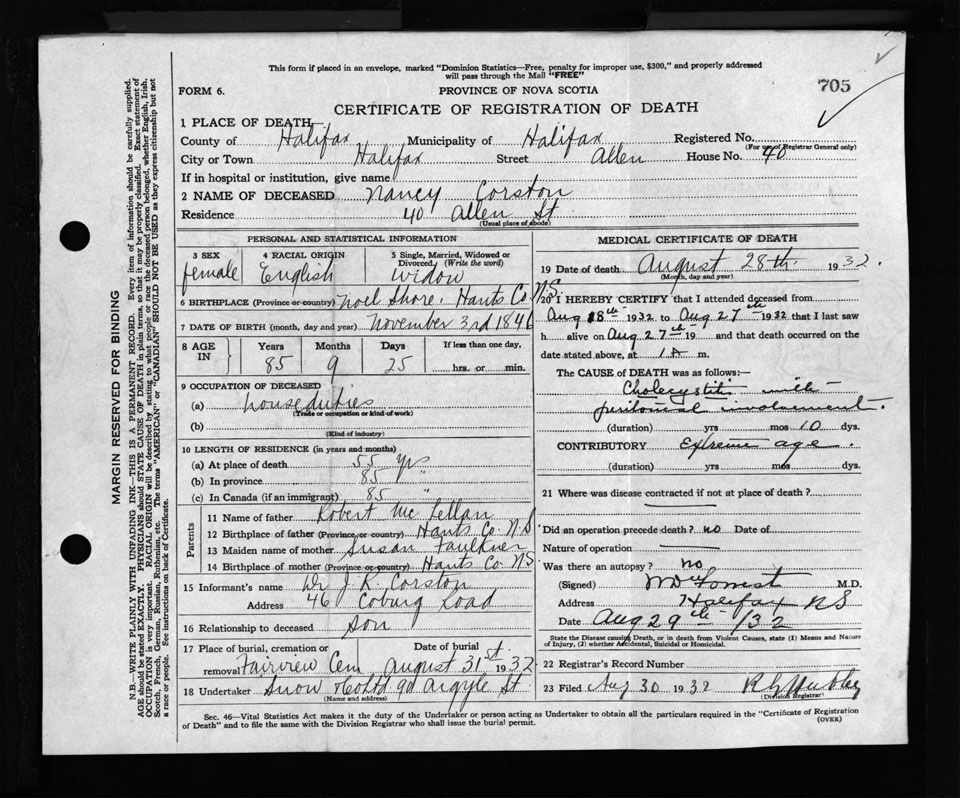 This form if placed in an envelope, marked "Dominion Statistics—Free, penalty for improper use, $300," and properly addressed
will pass through the Mail "FREE"
FORM 6. PROVINCE OF NOVA SCOTIA 705
CERTIFICATE OF REGISTRATION OF DEATH
1 PLACE OF DEATH
County of Halifax Municipality of Halifax Registered No.
(For use of Registrar General only)
City or Town Halifax Street Allen House No. 40
If in hospital or institution, give name
2 NAME OF DECEASED Nancy Corston
Residence 40 Allen St.
(Usual place of abode)
PERSONAL AND STATISTICAL INFORMATION
3 SEX 4 RACIAL ORIGIN 5 Single, Married, Widowed or
Divorced. (Write the word)
female English Widow
6 BIRTHPLACE (Province or country) Noel Shore. Hants Co N.S.
7 DATE OF BIRTH (month, day and year) November 3rd 1846
8 AGE IN Years Months Days If less than one day,
85 9 25 hrs. or min.
9 OCCUPATION OF DECEASED
(a) house duties
(Trade or occupation or kind of work)
(b)
(Kind of industry)
10 LENGTH OF RESIDENCE (in years and months)
(a) At place of death 55 yrs
(b) In province 85 "
(c) In Canada (if an immigrant) 85 "
Parents
11 Name of father Robert McLellan
12 Birthplace of father (Province or country) Hants Co. N.S
13 Maiden name of mother Susan Faulkner
14 Birthplace of mother (Province or country) Hants Co. N.S
15 Informant's name Dr J. K. Corston
Address 46 Coburg Road
16 Relationship to deceased Son
17 Place of burial, cremation or removal Date of burial
Fairview Cem August 31st 1932
18 Undertaker Snow & Co Ltd 90 Argyle St
(Name and address)
MEDICAL CERTIFICATE OF DEATH
19 Date of death August 28th. 1932.
(Month, day and year)
20 I HEREBY CERTIFY that I attended deceased from
Aug 18th 1932 to Aug 27th 1932 that I last saw
h alive on Aug 27th 19 and that death occurred on the
date stated above, at 1 A m.
The CAUSE of DEATH was as follows:—
Cholecystitis with
peritoneal involvement.
(duration) yrs mos 10 dys.
CONTRIBUTORY Extreme age.
(duration) yrs mos dys.
21 Where was disease contracted if not at place of death?
Did an operation precede death? no Date of
Nature of operation
Was there an autopsy? no
(Signed) M.D.
Address Halifax NS
Date Aug 29th /32
State the Disease causing Death, or in death from Violent Causes, state (1) Means and Nature
of Injury, (2) whether Accidental, Suicidal or Homicidal.
22 Registrar's Record Number
23 Filed Aug 30 1932
(Division Registrar)
Sec. 46—Vital Statistics Act makes it the duty of the Undertaker or person acting as Undertaker to obtain all the particulars required in the "Certificate of Registration
of Death" and to file the same with the Division Registrar who shall issue the burial permit. (OVER)
MARGIN RESERVED FOR BINDING
N.B. WRITE PLAINLY WITH UNFADING INK—THIS IS A PERMANENT RECORD. Every item of information should be carefully supplied.
AGE should be stated EXACTLY. PHYSICIANS should STATE CAUSE OF DEATH in plain terms, so that it may be properly classified. Exact statement of
OCCUPATION is very important. RACIAL ORIGIN will be described by stating to what people or race the deceased person belonged, whether English, Irish,
Scotch, French, German, Russian, Ruthenian, etc. The terms "AMERICAN" or "CANADIAN" SHOULD NOT BE USED as they express citizenship but not
a race or people. See instructions on back of Certificate.